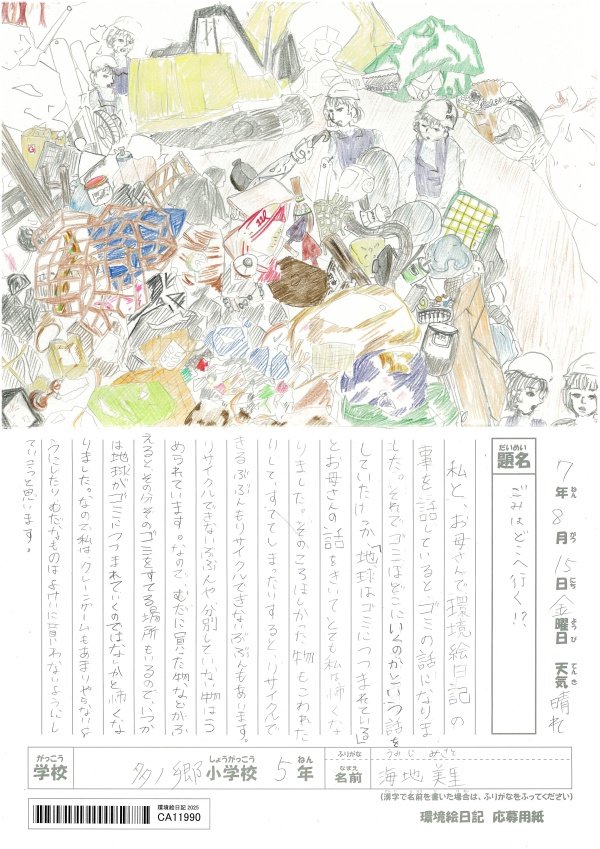 7年8月15日金曜日 天気 晴れ
ねん がつ にち ようび てんき
だいめい
題名
ごみはどこへ行く!?
私と、お母さんで環境絵日記の
事を話していると、ゴミの話になりま
した。それでゴミはどこにいくのかという話を
していたけっか「地球はゴミにつつまれている」
とお母さんの話をきいてとても私は怖くな
りました。そのころほしかった物もこわれた
りして、すててしまったりすると、リサイクルで
きるぶぶんもリサイクルできないぶぶんもあります。
リサイクルできないぶぶんや分別していない物はう
められています。なので、むだに買った物などがふ
えるとその分そのゴミをすてる場所もいるので、いつか
は地球がゴミにつつまれていくのではないかと怖くな
りました。なので私はクレーンゲームもあまりやらないよ
うにしたりむだなものはよけいに買わないようにし
ていこうと思います。
がっこう
学校
多ノ郷小学校 5年
しょうがっこう ねん
ふりがな うみじ みさと
なまえ
名前
海地 美里
(漢字で名前を書いた場合は、ふりがなをふってください)
環境絵日記 2025
CA11990
環境絵日記 応募用紙